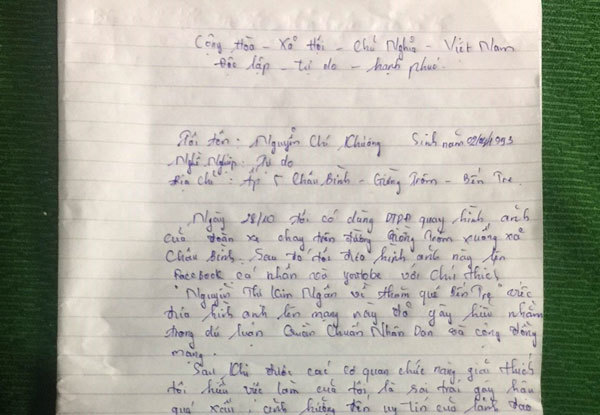 Cộng Hoà - Xả Hội - Chủ Nghĩa - Việt Nam
Độc lập - tự do - hạnh phúc.
Tôi tên: Nguyễn Chí Khương Sinh năm 1993
Nghề Nghiệp: Tự do
Địa chỉ: ấp 5 Châu Bình - Giồng Trôm - Bến Tre.
Ngày 28/10 tôi có dùng DTDĐ quay hình ảnh
của đoàn xe chạy trên đường Giồng Trôm xuống xả
Châu Bình. Sau đó tôi đưa hình ảnh này lên
Facebook cá nhân và youtobe với chú thích
"Nguyễn Thị Kim Ngân về thăm quê Bến Tre" việc
đưa hình ảnh lên mạng này đả gây hiểu nhằm
trong dư luận Quần Chuấn Nhân Dân và công đồng
mạng.
Sau khi được các cơ quan chức năng giải thích
tôi hiểu việc làm của tôi là sai trái gây hậu
quả xấu. ảnh hưởng đến uy tín của lảnh đạo